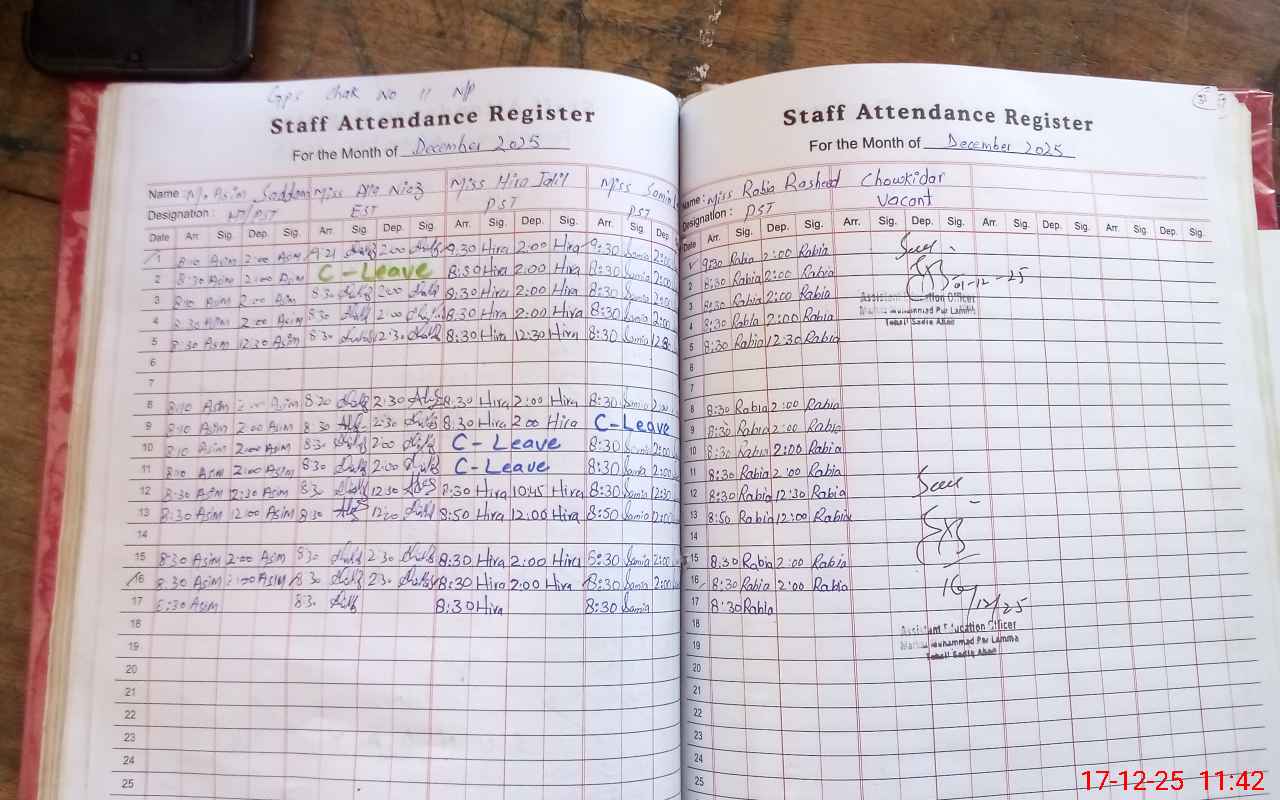 Gps Chak No 11 NP
Staff Attendance Register
For the Month of December 2025
Name: M. Asim Saddam Miss Niaz Miss Hira Jalil Miss Samia
Designation: PST EST PST PST
Date Arr. Sig. Dep. Sig. Arr. Sig. Dep. Sig. Arr. Sig. Dep. Sig. Arr. Sig. Dep.
1 8:10 Asim 2:00 Asim 9:21 2:00 9:30 Hira 2:00 Hira 9:30 Samia 2:00
2 8:30 Asim 2:00 Asim C-Leave 8:30 Hira 2:00 Hira 8:30 Samia 2:00
3 8:10 Asim 2:00 Asim 8:30 2:00 8:30 Hira 2:00 Hira 8:30 Samia 2:00
4 8:30 Asim 2:00 Asim 8:30 2:00 8:30 Hira 2:00 Hira 8:30 Samia 2:00
5 8:30 Asim 12:30 Asim 8:30 12:30 8:30 Hira 12:30 Hira 8:30 Samia
6
7
8 8:10 Asim Asim 8:30 2:30 8:30 Hira 2:00 Hira 8:30 Samia 2:00
9 8:10 Asim 2:00 Asim 8:30 2:30 8:30 Hira 2:00 Hira C-Leave
10 8:10 Asim 2:00 Asim 8:30 2:00 C-Leave 8:30 Samia 2:00
11 8:10 Asim 2:00 Asim 8:30 2:00 C-Leave 8:30 Samia 2:00
12 8:30 Asim 2:30 Asim 8:30 12:30 8:30 Hira 10:45 Hira 8:30 Samia 12:30
13 8:30 Asim 12:00 Asim 8:30 12:00 8:50 Hira 12:00 Hira 8:50 Samia 12:00
14
15 8:30 Asim 2:00 Asim 8:30 2:30 8:30 Hira 2:00 Hira 8:30 Samia 2:00
16 8:30 Asim 2:00 Asim 8:30 2:30 8:30 Hira 2:00 Hira 8:30 Samia 2:00
17 8:30 Asim 8:30 8:30 Hira 8:30 Samia
18
19
20
21
22
23
24
25
Staff Attendance Register
For the Month of December 2025
Name: Miss Rabia Rasheed Chowkidar
Designation: PST Vacant
Date Arr. Sig. Dep. Sig. Arr. Sig. Dep. Sig. Arr. Sig. Dep. Sig. Arr. Sig. Dep. Sig.
9:30 Rabia 2:00 Rabia
2 8:30 Rabia 2:00 Rabia 01-12-25
3 8:30 Rabia 2:00 Rabia Assistant Education Officer
4 8:30 Rabia 2:00 Rabia Muhammad Pur Lamma
Tehsil Sadiq Abad
5 8:30 Rabia 12:30 Rabia
6
7
8 8:30 Rabia 2:00 Rabia
9 8:30 Rabia 2:00 Rabia
10 8:30 Rabia 2:00 Rabia
11 8:30 Rabia 2:00 Rabia
12 8:30 Rabia 12:30 Rabia
13 8:50 Rabia 12:00 Rabia
14
15 8:30 Rabia 2:00 Rabia
16 8:30 Rabia 2:00 Rabia 16/12/25
17 8:30 Rabia
18 Assistant Education Officer
19 Muhammad Pur Lamma
Tehsil Sadiq Abad
20
21
22
23
24
25
17-12-25 11:42